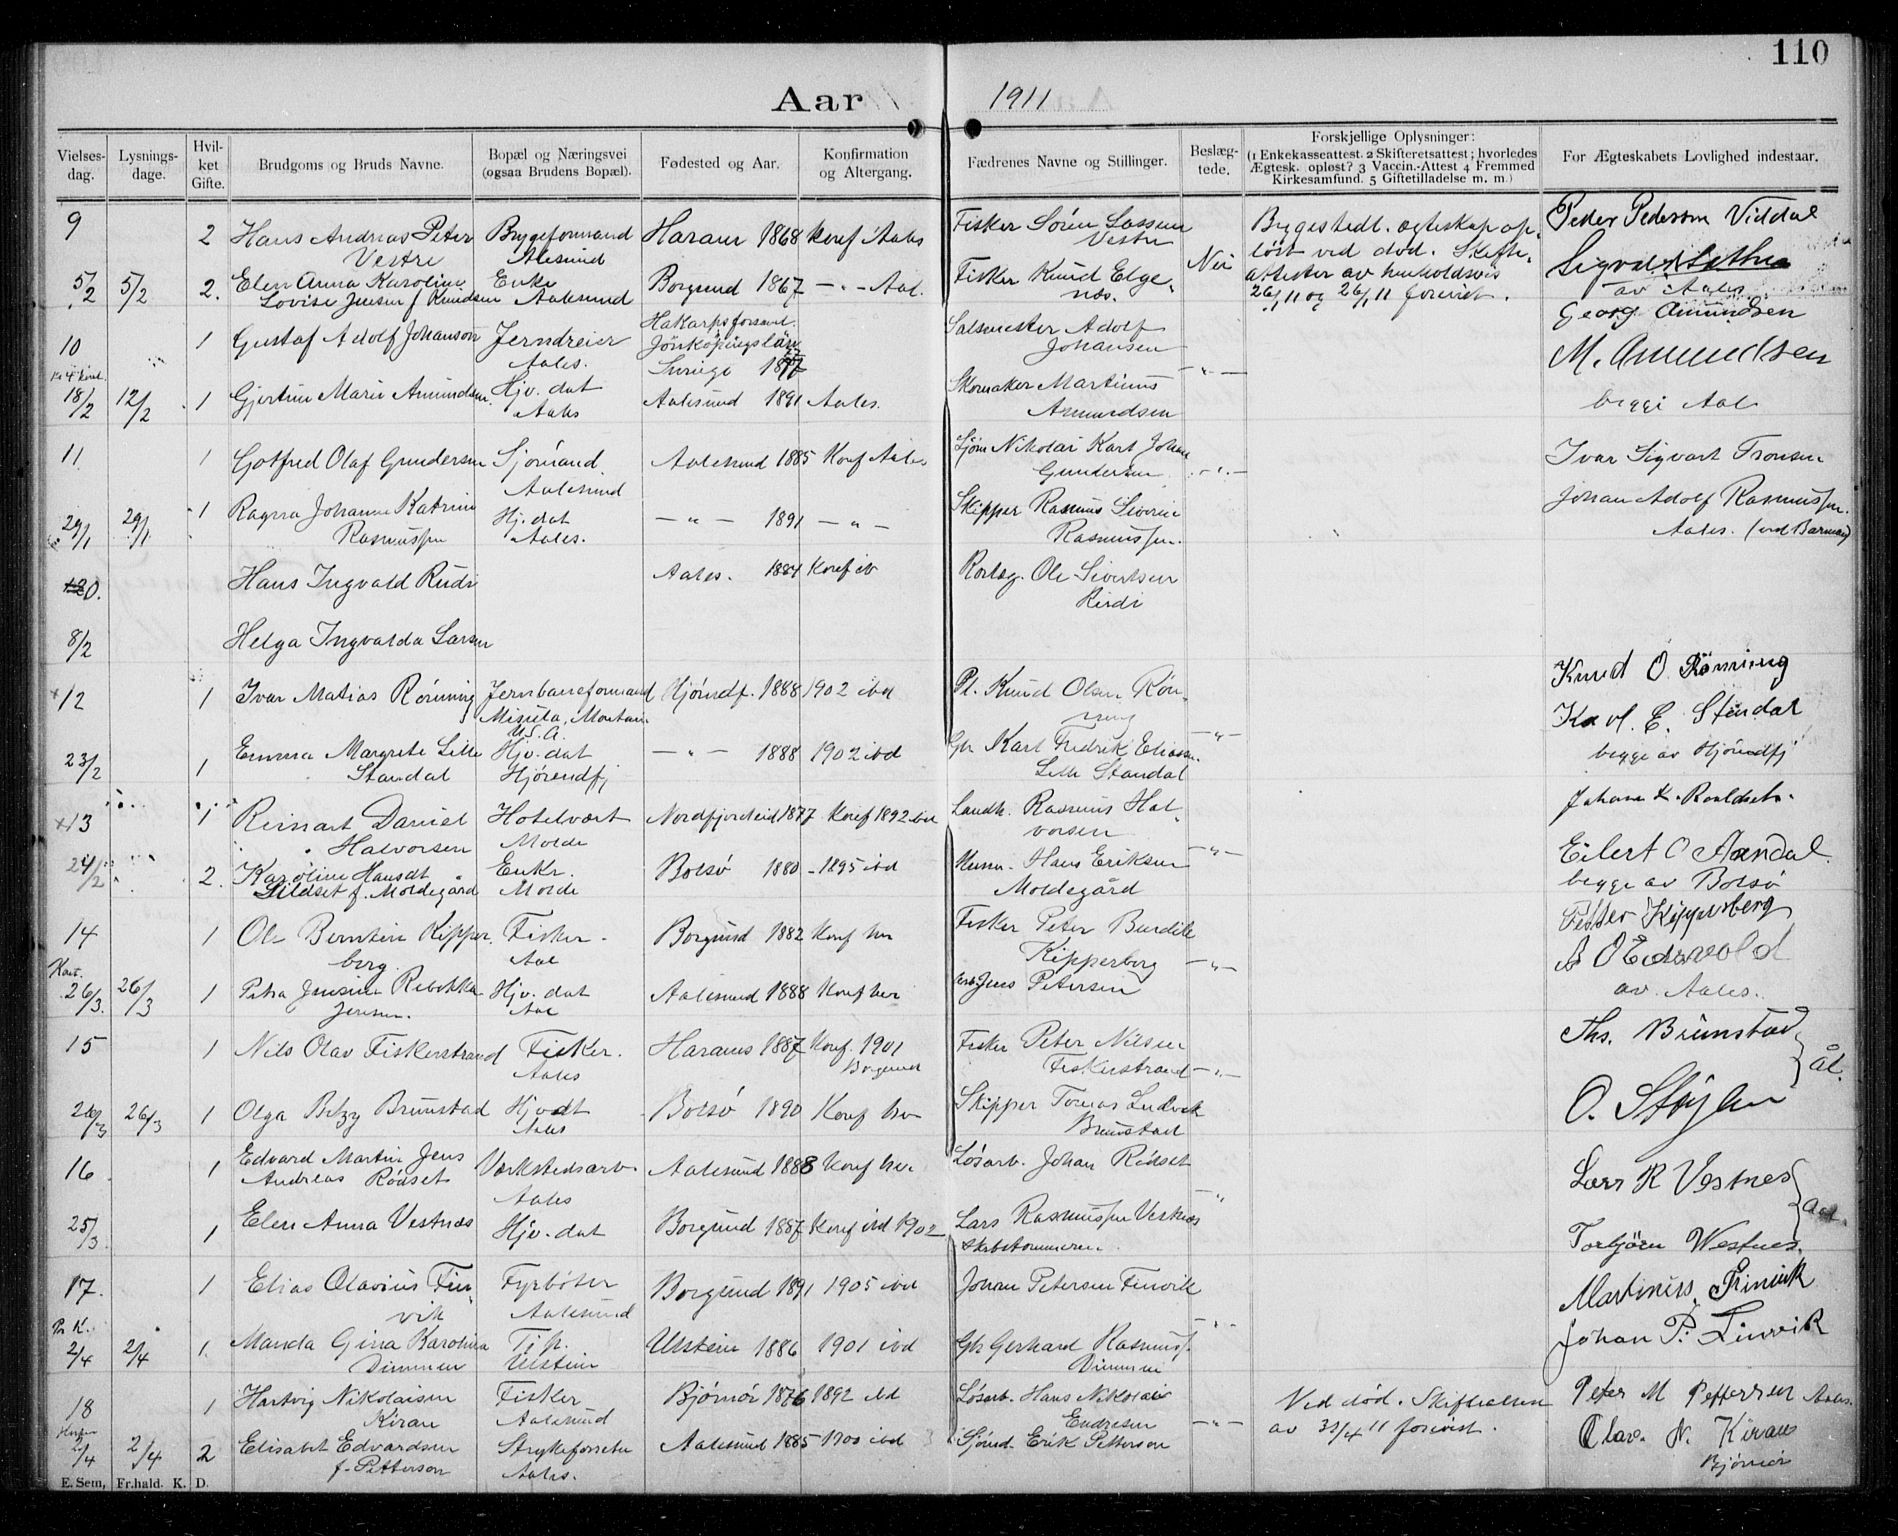 110
Aar 1911
Vielses-dag. Lysnings-dage. Hvil-ket Gifte. Brudgoms og Bruds Navne. Bopæl og Næringsvei (ogsaa Brudens Bopæl). Fødested og Aar. Konfirmation og Altergang. Fædrenes Navne og Stillinger. Beslæg-tede. Forskjellige Oplysninger: (1 Enkekasseattest. 2 Skifteretsattest; hvorledes Ægtesk. opløst? 3 Vaccin.-Attest 4 Fremmed Kirkesamfund. 5 Giftetilladelse m. m.) For Ægteskabets Lovlighed indestaar.
9 2 Hans Andreas Peter Bryggeformand Haram 1868 konf Aales Fisker Søren Lassen Byggestedt. egteskap op- Peder Pederson Viddal
Vestre Alesund Vestre Nei løst ved død. Skifte-
5/2 5/2 2. Elen Anna Karoline Enke Borgund 1867 - " - Aal. Fisker Knud Elge- attester av henholdsvis
Lovise Jensen f. Knudsen Aalesund nes. 26/1 11 og 26/1 11 forevist. av Aales.
Georg Amundsen
10 1 Gustaf Adolf Johanson Jerndreier Hakarps forsaml. Jönköpingslän Adolf Johansen M. Amundsen
Aales. Sverige - " -
18/2 12/2 1 Gjertine Marie Amundsen Hjv. dat Aales Aalesund 1891 Aales. Skomaker Martinus Amundsen begge Aal
11. 1 Gotfred Olaf Gundersen Sjömand. Aalesund 1885 Konf Aales Sjøm Nikolai Karl Johan Ivar Sigvart Tronsen
Aalesund Gundersen - " -
29/1 29/1 1 Ragna Johanne Katrine Hj. dat - " - 1891 - " - Skipper Rasmus Severin Johan Adolf Rasmussen.
Rasmussen Aales. Rasmussen. Aales.
Hans Ingvald Rudi Aales. 1884 Konf ib Ole Sivertsen
Rudi
8/2 Helga Ingvalda Larsen
12 1 Ivar Matias Rönning Jernbaneformand Hjørndf. 1888 1902 ibd Pl. Knud Olsen Rön- Knud O Rönning
Misula, Montana ning Karl. E. Standal
U.S.A. - " -
23/2 1 Emma Margrete Lille Hjv. dat - " - 1888 1902 ibd Gbr Karl Fredrik Eliassen begge av Hjörundfj
Standal Hjörendfj Lille Standal
13 1 Reinart Daniel Hotelvert Nordfjordeid 1877 Konf 1892 ibd Landh. Rasmus Hal- Johan K. Roaldset.
Halvorsen Molde vorsen
24/2 2. Karoline Hansdt Enke. Bolsø 1880 - 1895 ibd Husm. Hans Eriksen - " - Eilert O Aandal.
Sildset f. Moldegård Molde Moldegård begge av Bolsö
14 1 Ole Berntin Kipper Fisker Borgund 1882 Konf her Fisker Peter Burdik Petter Kipperberg
berg. Aal Kipperberg - " -
26/3. 26/3 1 Petra Jensine Rebekka Hjv. dat Aalesund 1888 Konf her Jens Petersen av Aales.
Jensen. Aal
15 1 Nils Olav Fiskerstrand Fisker. Harams 1887 Konf. 1901 Fisker Peter Nilsen Ths. Brunstad
Aales Borgund Fiskerstrand - " - Ål.
26/3 26/3 1 Olga Betzy Brunstad Hjvdt Bolsö 1890 Konf her Skipper Tomas Ludvik
Aales Brunstad
16 1 Edvard Martin Jens Verkstedsarb. Aalesund 1888 Konf her Løsarb. Johan Rödset Lars R Vestnes
Andreas Rödset Aales
25/3 1 Elen Anna Vestnæs Hjv. dat Borgund 1887 Konf ibd 1902 Lars Rasmussen Vestnes " Torbjörn Westnes.
Skibstømmerm.
17. 1 Elias Olavius Fin- Fyrbøter Borgund 1891 1905 ibd Johan Petersen Finvik Martinus. Finnvik
vik Aalesund
2/4 2/4 1. Manda Gina Karolina Ulstein 1886 1901 ibd Gbr Gerhard Rasmuss. - " - Johan P. Finvik
Dimmen Ulstein Dimmen
18 1 Hartvig Nikolaisen Fisker Bjørnör 1876 1892 ibd Løsarb. Hans Nikolai Ved død. Skifteattest Peter M Petterson Aales.
Kiran Aalesund Endresen - " - forevist. Olav. N. Kiran
2/4 2/4 2 Elisabet Edvardsen Aalesund 1885 1900 ibd Sjømd. Erik Petterson Bjørnör
f. Petterson Aales.
E. Sem, Fr.hald. K. D.